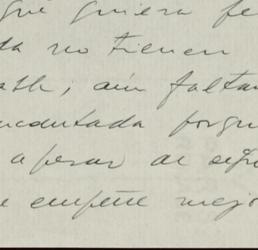 que quiera
da no tienen
aún faltan
encantada porqu
a pesar de
empeñe mejo